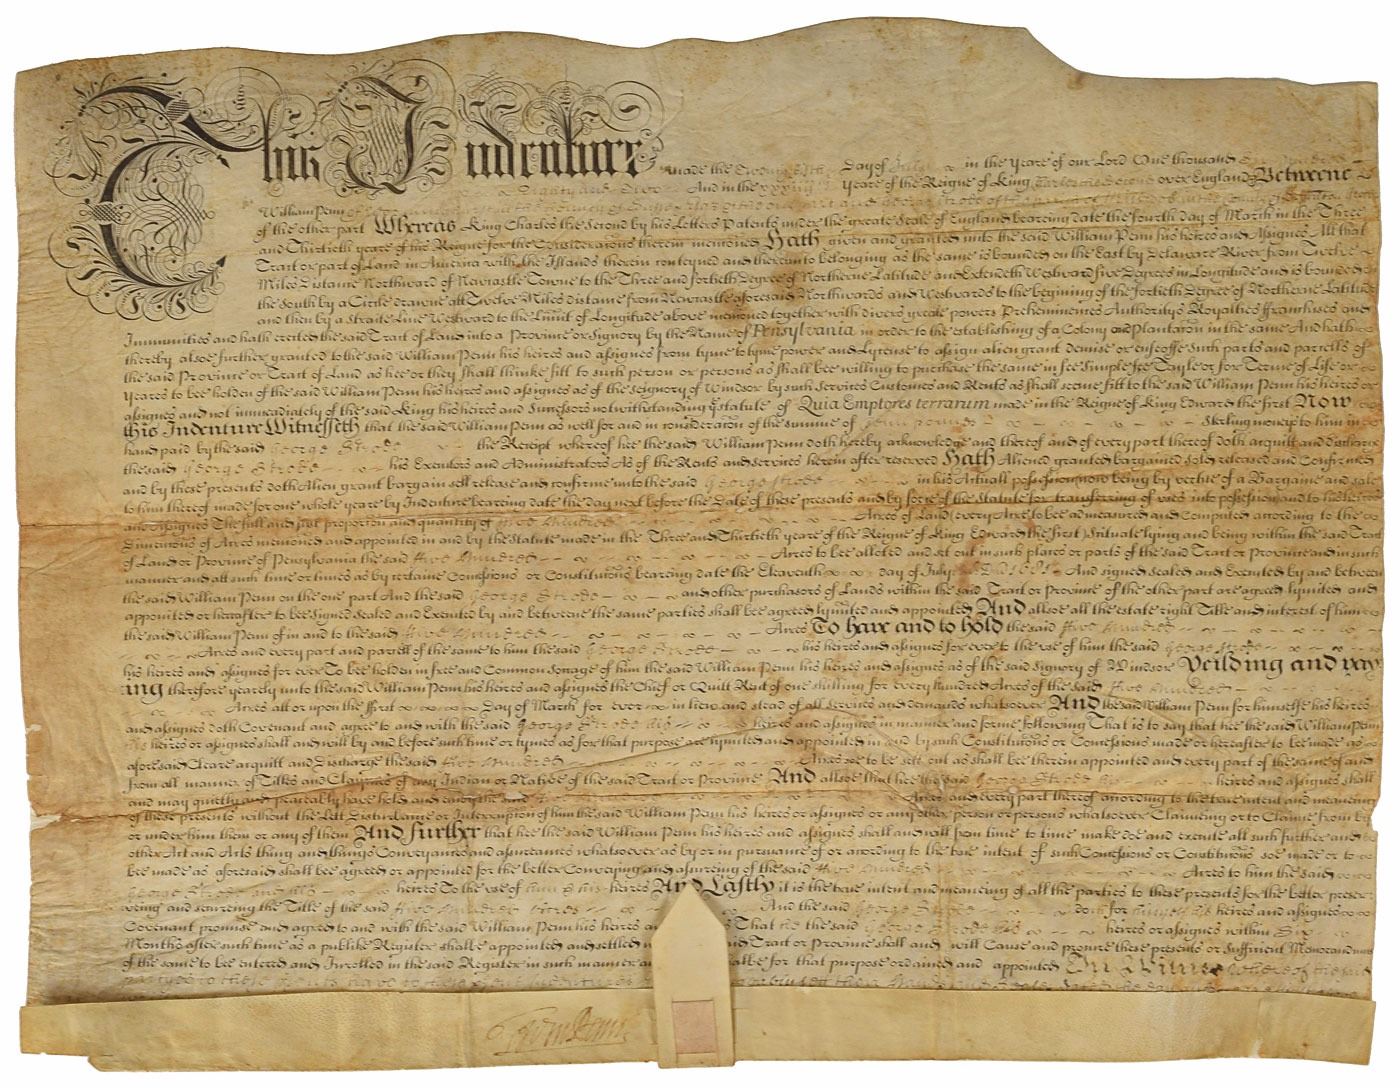 This Indenture made the Day of in the Yeare of our Lord One thousand
Eighty and And in the Yeare of the Reigne of King over England &c Betweene
William Penn of
of the other part Whereas King Charles the Second by his Letters Patents under the greate Seale of England beareing date the fourth day of March in the Three
and Thirtieth yeare of his Reigne for the Considerations therein mencioned Hath given and granted unto the said William Penn his heires and Assignes All that
Tract or part of Land in America with the Islands therein conteyned and thereunto belonging as the same is bounded on the East by Delaware River from Twelve
Miles Distance Northward of Newcastle Towne to the Three and fortieth Degree of Northerne Latitude and Extendeth Westward five Degrees in Longitude and is bounded
the South by a Circle drawne att Twelve Miles distance from Newcastle aforesaid Northwards and Westwards to the begining of the fortieth Degree of Northerne Latitude
and then by a Straite Line Westward to the Limitt of Longitude above mencioned together with divers greate powers Preheminences Authoritys Royalties ffranchises and
Immunities and hath erected the said Tract of Land into a Province or Signory by the Name of Pensylvania in order to the establishing of a Colony and Plantacon in the same And hath
thereby alsoe further granted to the said William Penn his heires and assignes from tyme to tyme power and Lycense to assign alien grant demise or enfeoffe such parts and parcells of
the said Province or Tract of Land as hee or they shall thinke fitt to such person or persons as shall bee willing to purchase the same in fee Simple fee Tayle or for Terme of Life or
Yeares to bee holden of the said William Penn his heires and assignes as of the seignory of Windsor by such Services Customes and Rents as shall seeme fitt to the said William Penn his heires or
assignes and not immediately of the said King his heires and Successors notwithstanding ye statute of Quia Emptores terrarum made in the Reigne of King Edward the first Now
this Indenture Witnesseth that the said William Penn as well for and in consideracon of the summe of Tenn pounds Sterling moneys to him in
hand paid by the said George Strode the Receipt whereof hee the said William Penn doth hereby acknowledge and thereof and of every part thereof doth acquitt and discharge
the said George Strode his Executors and Administrators As of the Rents and services herein after reserved Hath Aliened granted bargained sold released and Confirmed
and by these presents doth Alien grant bargain sell release and confirme unto the said George Strode in his Actuall possession now being by vertue of a Bargaine and sale
to him thereof made for one whole yeare by Indenture beareing date the day next before the Date of these presents and by force of the Statute for transferring of uses into possession and to his heires
and Assignes The full and just proporcion and quantity of five Hundred Acres of Land (every Acre to bee admeasured and Computed according to the
Dimencions of Acres mencioned and appointed in and by the Statute made in the Three and Thirtieth yeare of the Reigne of King Edward the first) Scituate lying and being within the said Tract
of Land or Province of Pensylvania the said five Hundred Acres to bee alloted and set out in such places or parts of the said Tract or Province and in such
manner and att such time or times as by certaine Concessions or Constitucons beareing date the Eleaventh day of July And signed sealed and Executed by and between
the said William Penn on the one part And the said George Strode and other purchasors of Lands within the said Tract or Province of the other part are agreed lymited and
appointed or hereafter to bee Signed Sealed and Executed by and betweene the same parties shall bee agreed lymitted and appointed And allsoe all the estate right Title and interest of him
the said William Penn of in and to the said five Hundred Acres To have and to hold the said five Hundred
Acres and every part and parcell of the same to him the said George Strode his heires and assignes for ever to the use of him the said George Strode
his heires and assignes for ever To bee holden in free and Common Soccage of him the said William Penn his heires and assignes as of the said Signory of Windsor Yeilding and pay
ing therefore yearely unto the said William Penn his heires and assignes the Chief or Quitt Rent of one shilling for every hundred Acres of the said five Hundred
Acres att or upon the ffirst Day of March for ever in lieu and stead of all services and demands whatsoever And the said William Penn for himselfe his heires
and assignes doth Covenant and agree to and with the said George Strode his heires and assignes in manner and forme following That is to say that hee the said William Penn
his heires or assignes shall and will by and before such time or tymes as for that purpose are lymited and appointed in and by such Constitucons or Concessions made or hereafter to bee made as
aforesaid Cleare acquitt and Discharge the said five Hundred Acres soe to bee sett out as shall bee therein appointed and every part of the same of and
from all manner of Titles and Claymes of any Indian or Native of the said Tract or Province And allsoe that hee the said George Strode his heires and assignes shall
and may quietly and peaceably have hold and enjoy the said Acres and every part thereof according to the true intent and meaneing
of these presents without the Lett Disturbance or Interrupcion of him the said William Penn his heires or assignes or any other person or persons whatsoever Claimeing or to Claime from by
or under him them or any of them And further that hee the said William Penn his heires and assignes shall and will from time to time make doe and execute all such further and
other Act and Acts thing and things Conveyances and assurances whatsoever as by or in pursuance of or according to the true intent of such Concessions or Constitucons soe made or to
bee made as aforesaid shall bee agreed or appointed for the better Conveying and assureing of the said five Hundred Acres to him the said
George Strode and his heires To the use of him & his heires And Lastly it is the true intent and meaneing of all the parties to these presents for the better preser
veing and secureing the Title of the said five Hundred Acres And the said George Strode doth for himself his heires and assignes
Covenant promise and agree to and with the said William Penn his heires and That he the said George Strode his heires or assignes within Six
Months after such time as a publike Register shall be appointed and settled in Tract or Province shall and will Cause and procure these presents or Sufficient Memorandums
of the same to bee entered and Inrolled in the said Register in such manner as shall be for that purpose ordained and appointed In Witnes whereof the said
partyes to these
Wm Penn